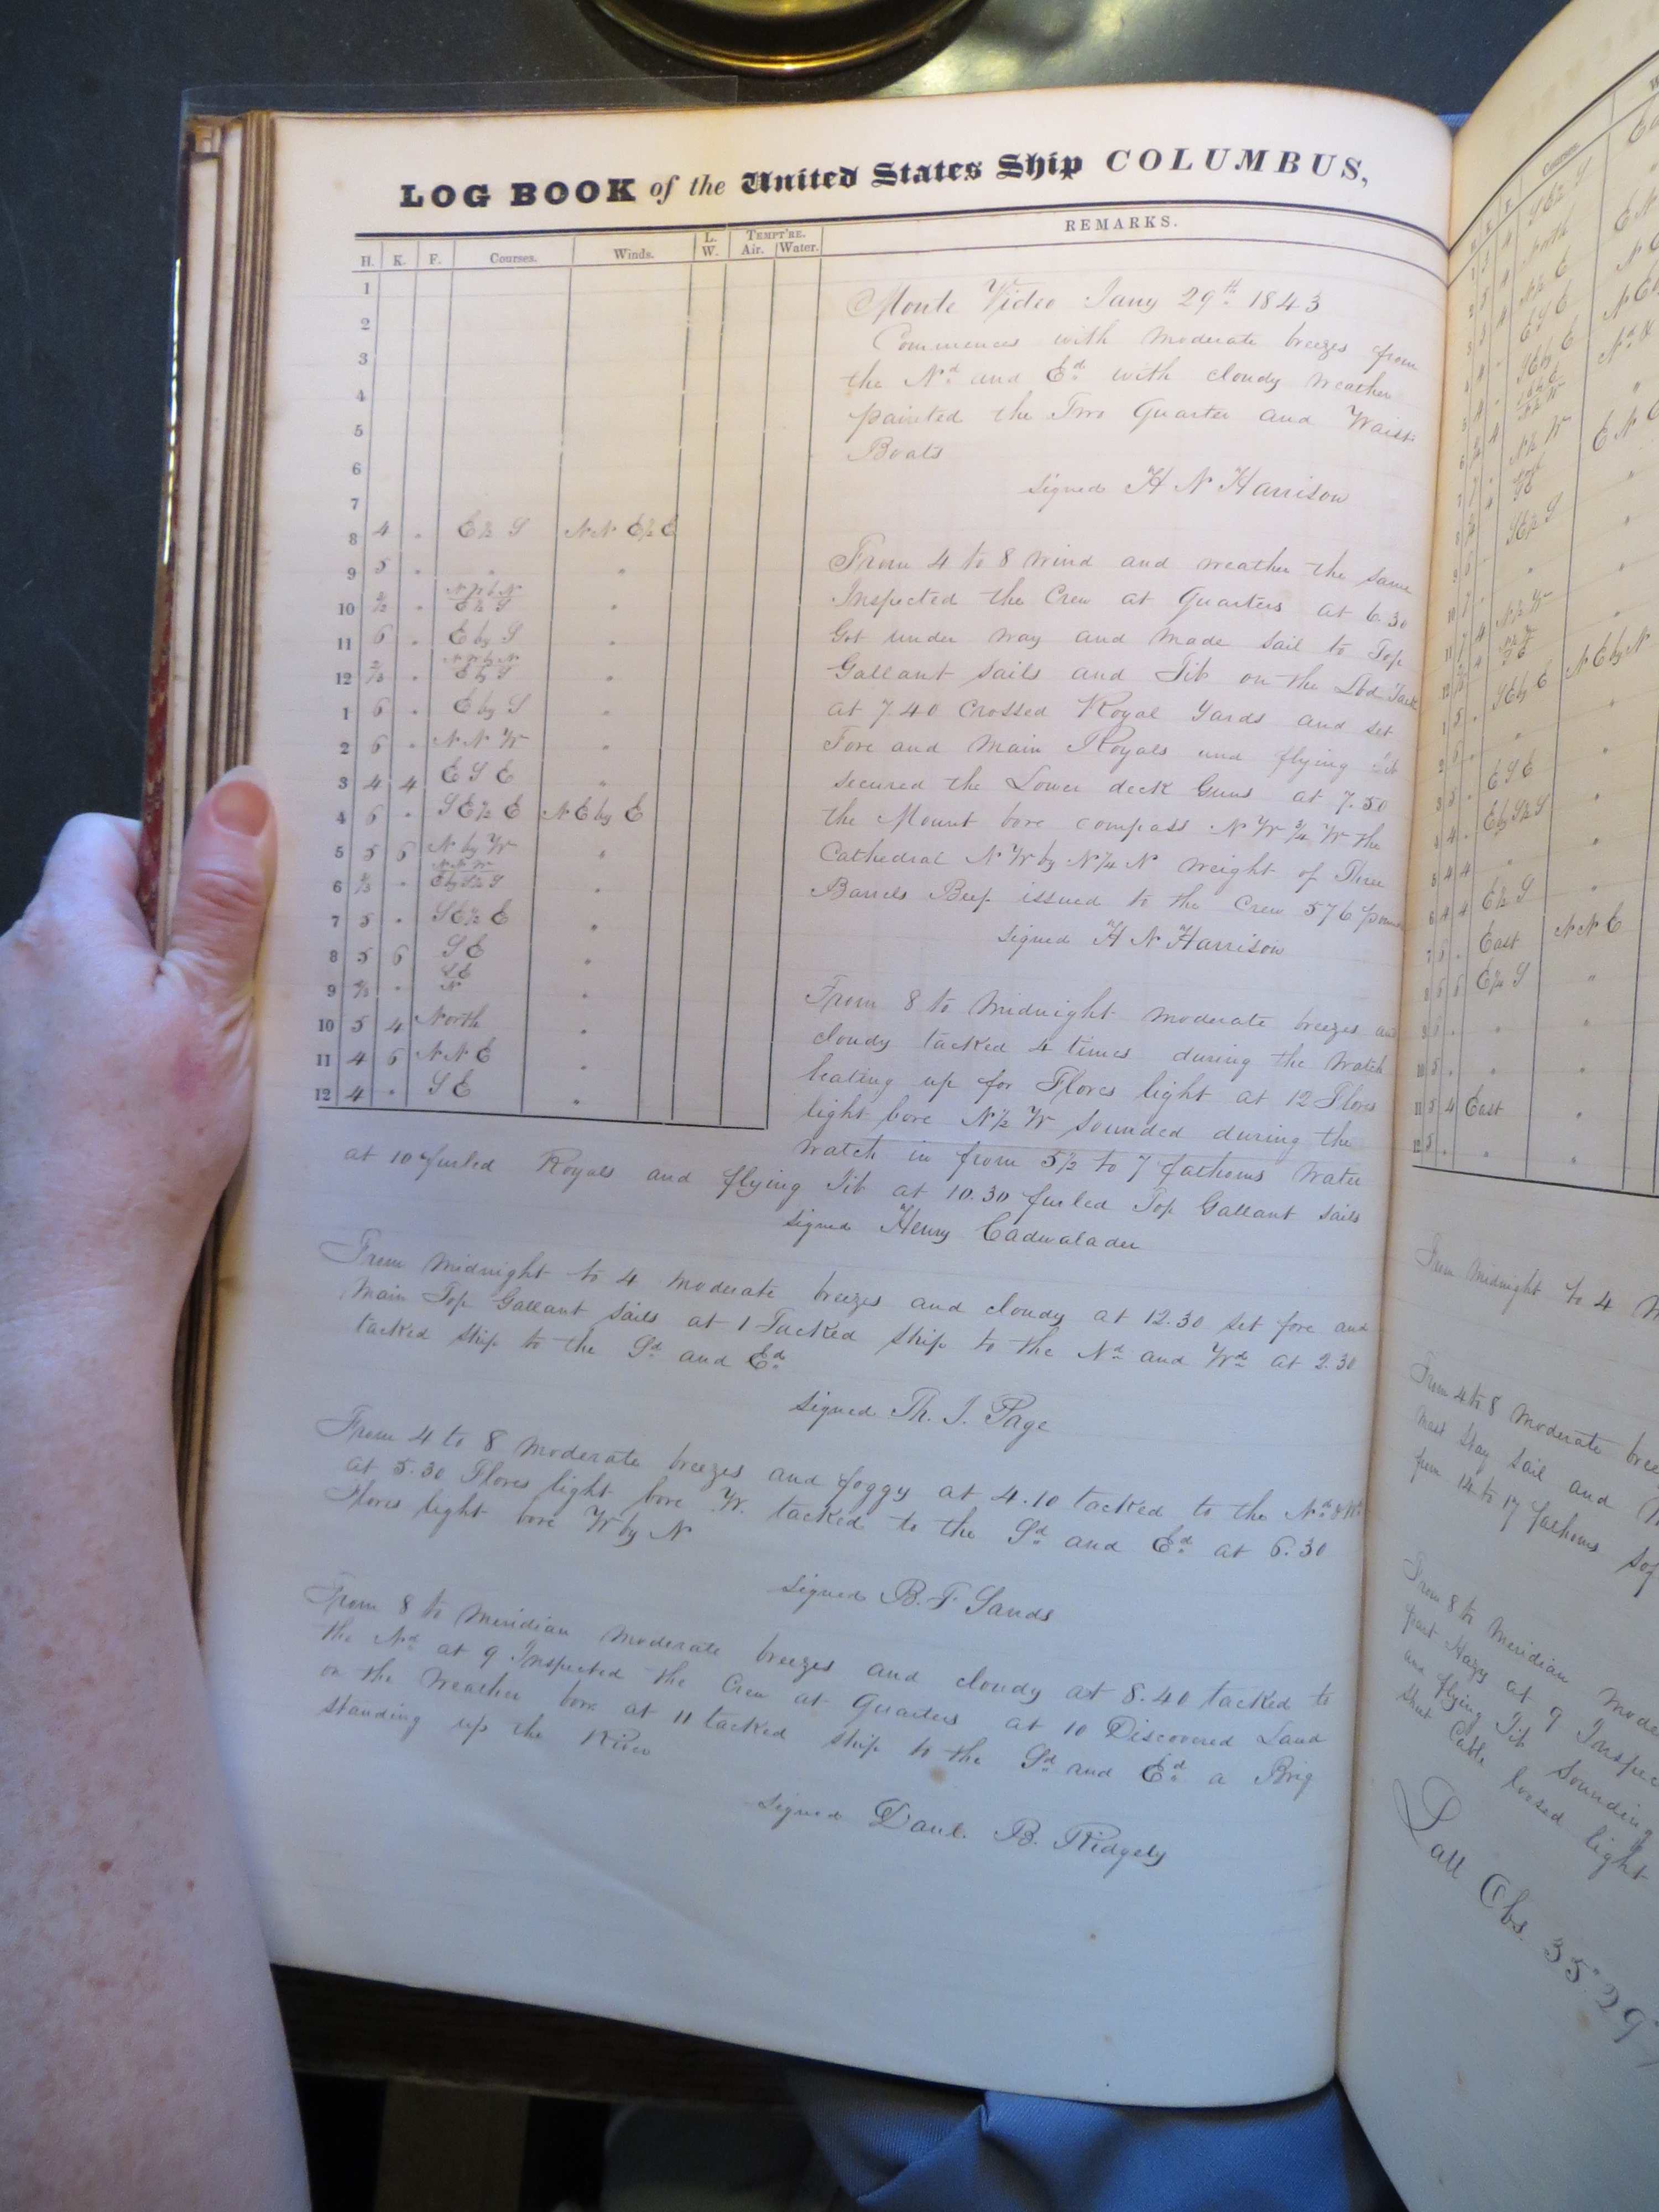 LOG BOOK of the United States Ship COLUMBUS,
H. K. F. Courses. Winds. L. W. TEMPT'RE. Air. Water. REMARKS.
1
2
3
4
5
6
7
8 4 . E½ S NN E½E
9 5 . " "
10 . NWbN E½ S "
11 6 . E by S "
12 . NWbyN E by S "
1 6 . E by S "
2 6 . NNW "
3 4 4 ESE "
4 6 . SE½ E NE by E
5 5 6 N by W "
6 . NNW EbyS½S "
7 5 . SE½ E "
8 5 6 SE "
9 . SE N "
10 5 4 North "
11 4 6 NNE "
12 4 . SE "
Monte Video Jany 29th 1843
Commences with moderate breezes from
the Nd and Ed with cloudy weather
painted the Two Quarter and Waist
Boats
signed H N Harrison
From 4 to 8 wind and weather the same
Inspected the Crew at Quarters at 6.30
Got under way and made sail to Top
Gallant sails and Jib on the Lbd Tack
at 7.40 Crossed Royal Yards and set
Fore and Main Royals and flying Jib
secured the Lower deck Guns at 7.50
the Mount bore compass NW¾W the
Cathedral NW by N¼N weight of Three
Barrels Beef issued to the Crew 576 pounds
signed H N Harrison
From 8 to midnight moderate breezes and
cloudy tacked 4 times during the watch
beating up for Flores light at 12 Flores
light bore N½W sounded during the
watch in from 5½ to 7 fathoms water
at 10 furled Royals and flying Jib at 10.30 furled Top Gallant sails
signed Henry Cadwalader
From midnight to 4 moderate breezes and cloudy at 12.30 set fore and
Main Top Gallant sails at 1 Tacked ship to the Nd and Wd at 2.30
tacked ship to the Sd and Ed
signed Th. J. Page
From 4 to 8 moderate breezes and foggy at 4.10 tacked to the Nd & Wd
at 5.30 Flores light bore W. tacked to the Sd and Ed at 6.30
Flores light bore W by N
signed B. F Sands
From 8 to Meridian moderate breezes and cloudy at 8.40 tacked to
the Nd at 9 Inspected the Crew at Quarters at 10 Discovered Land
on the weather bow at 11 tacked ship to the Sd and Ed a Brig
standing up the River
signed Danl. B. Ridgely
Courses.
SE½ S
North
N½ E
ESE
SEby E
N½ W
SE½S
N½ W
SEby E NEbyN
ESE
EbyS½S
E½ S
East NNE
E¼ S "
11 5 4 East "
From Midnight to 4
From 4 to 8 moderate
Mast Stay sail and
from 14 to 17 fathoms
From 8 to Meridian
part Hazy at 9
and flying Jib Sounding
short Cable loosed light
Latt Obs. 35° 29